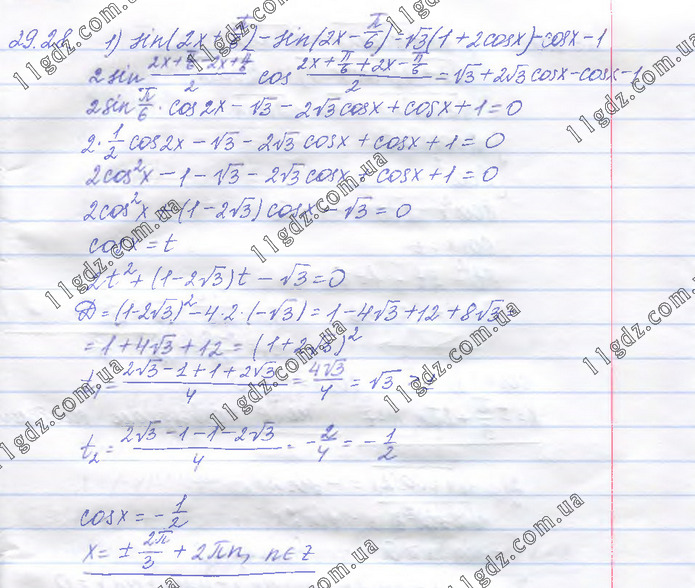 29.28 1) sin(2x+π/6)-sin(2x-π/6)=√3(1+2cosx)-cosx-1
2sin (2x+π/6-2x+π/6)/2 cos (2x+π/6+2x-π/6)/2 = √3+2√3cosx-cosx-1
2sin π/6 · cos2x-√3-2√3cosx+cosx+1=0
2·1/2 cos2x-√3-2√3cosx+cosx+1=0
2cos²x-1-√3-2√3cosx+cosx+1=0
2cos²x+(1-2√3)cosx-√3=0
cosx=t
2t²+(1-2√3)t-√3=0
D=(1-2√3)²-4·2·(-√3)=1-4√3+12+8√3=
=1+4√3+12=(1+2√3)²
t₁=(2√3-1+1+2√3)/4=4√3/4=√3
t₂=(2√3-1-1-2√3)/4=-2/4=-1/2
cosx=-1/2
x=±2π/3+2πn, n∈Z
11gdz.com.ua
11gdz.com.ua
11gdz.com.ua
11gdz.com.ua
11gdz.com.ua
11gdz.com.ua
11gdz.com.ua
11gdz.com.ua
11gdz.com.ua
11gdz.com.ua
11gdz.com.ua
11gdz.com.ua